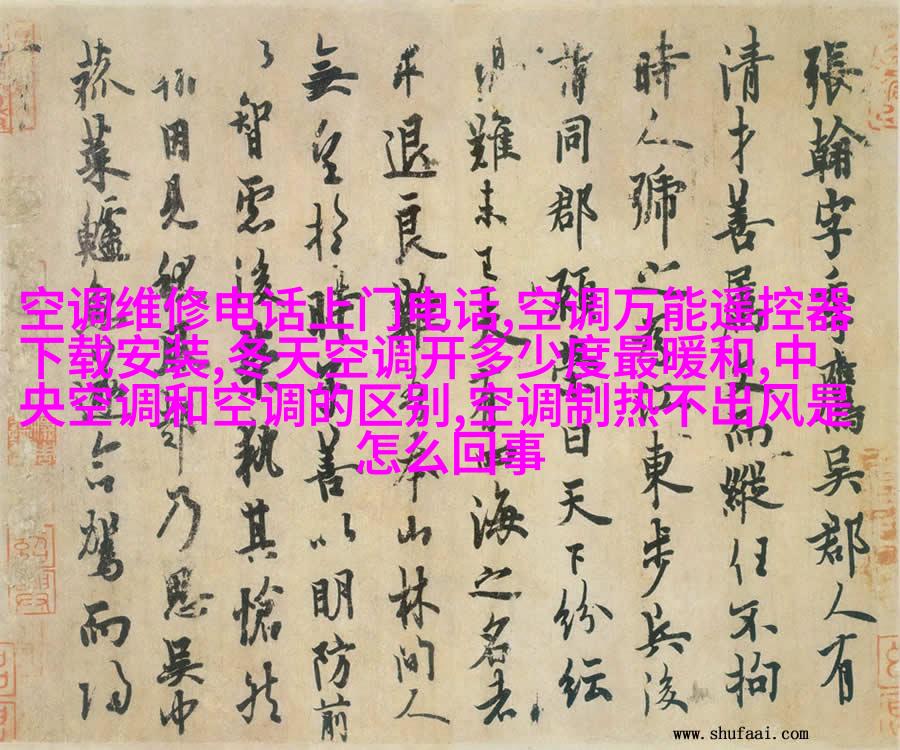 張翰字季鷹吳郡人有
清才善屬文而縱任不拘
時人號之為江東步兵後
謂同郡顧榮曰天下紛紜
難未已夫有四海之名者
求退良難吾本山林間人
無望於時子善以明防前
以智慮後榮執其愴然
翰因見秋風起乃思吳中
菰菜鱸魚遂命駕而歸
空调维修电话上门电话,空调万能遥控器
下载安装,冬天空调开多少度最暖和,中
央空调和空调的区别,空调制热不出风是
怎么回事
www.shufaai.com